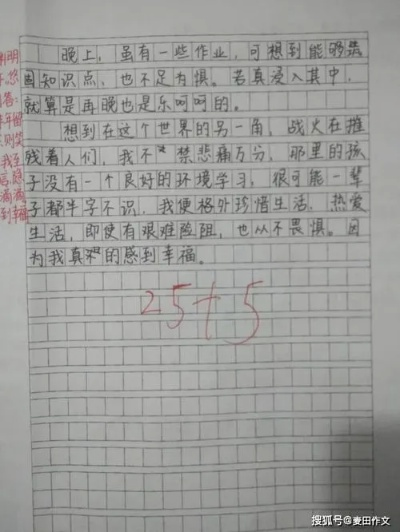 晚上，虽有一些作业，可想到能够巩
固知识点，也不足为惧。若真浸入其中，
就算是再晚也是乐呵呵的。
想到在这个世界的另一角，战火在摧
残着人们，我不禁悲痛万分，那里的孩
子没有一个良好的环境学习，很可能一辈
子都牛字不识，我便格外珍惜生活，热爱
生活，即使有艰难险阻，也从不畏惧。因
为我真的感到幸福。
25+5
搜狐号@麦田作文